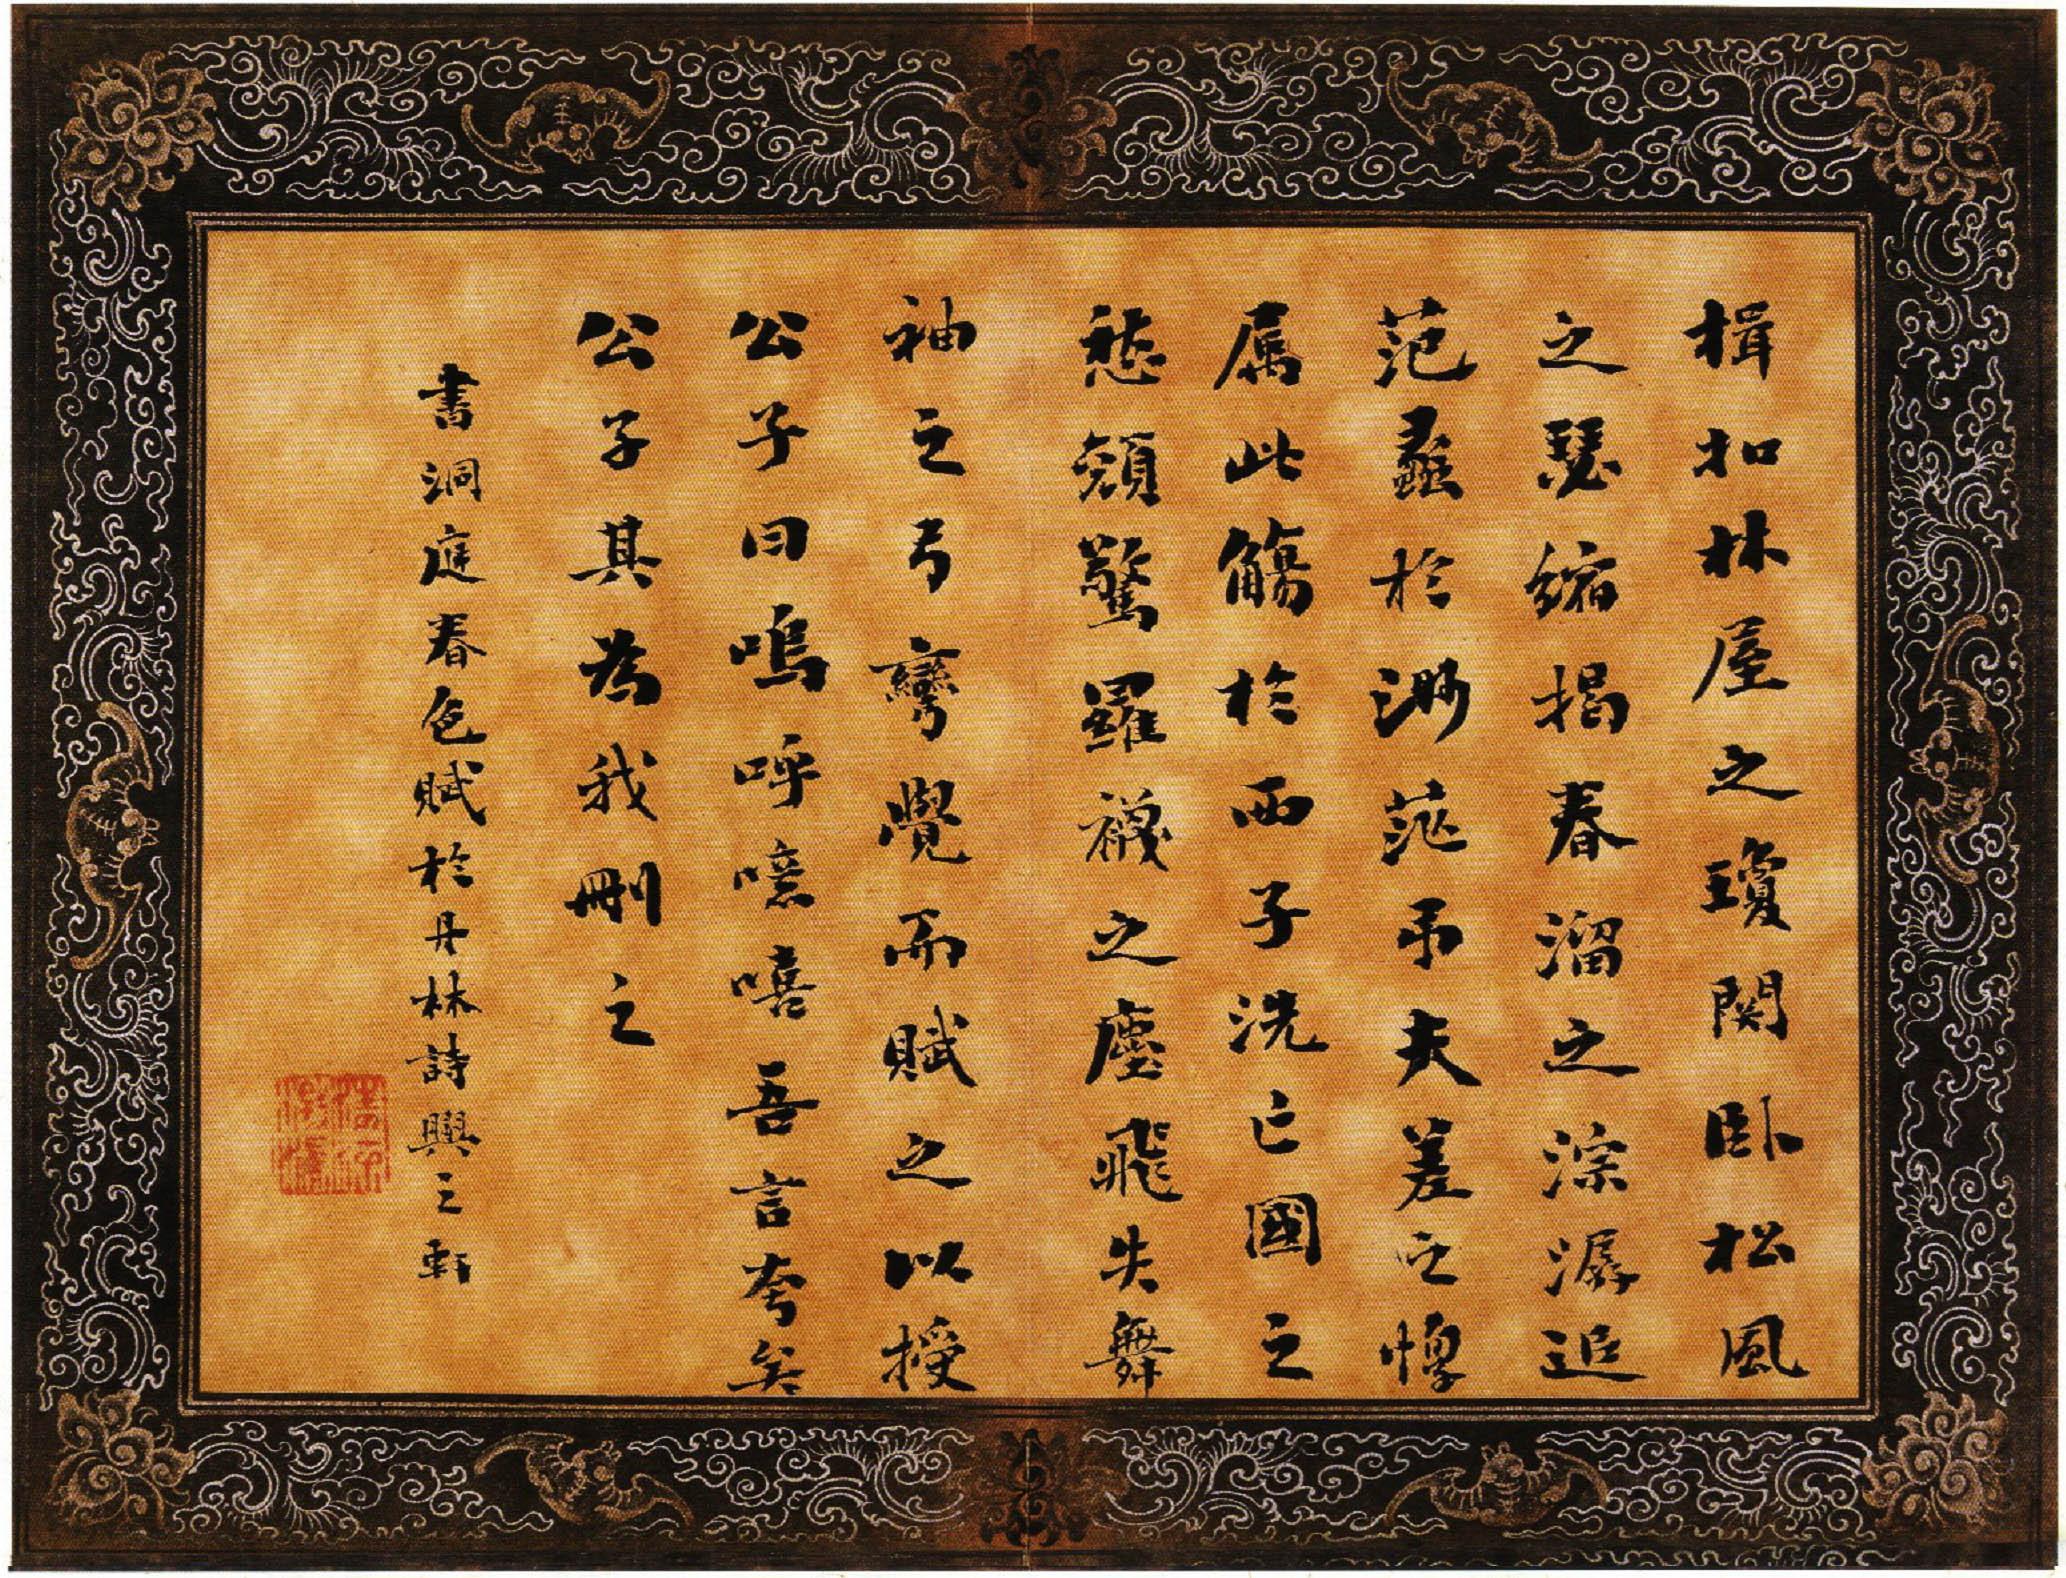 楫扣林屋之瓊關卧松風
之瑟縮揭春溜之淙潺追
范蠡於渺茫吊夫差之惸
属此觴於西子洗亡國之
愁顏驚羅襪之塵飛失舞
袖之弓彎覺而賦之以授
公子曰嗚呼噫嘻吾言夸矣
公子其為我刪之
書洞庭春色賦於丹林詩興之軒